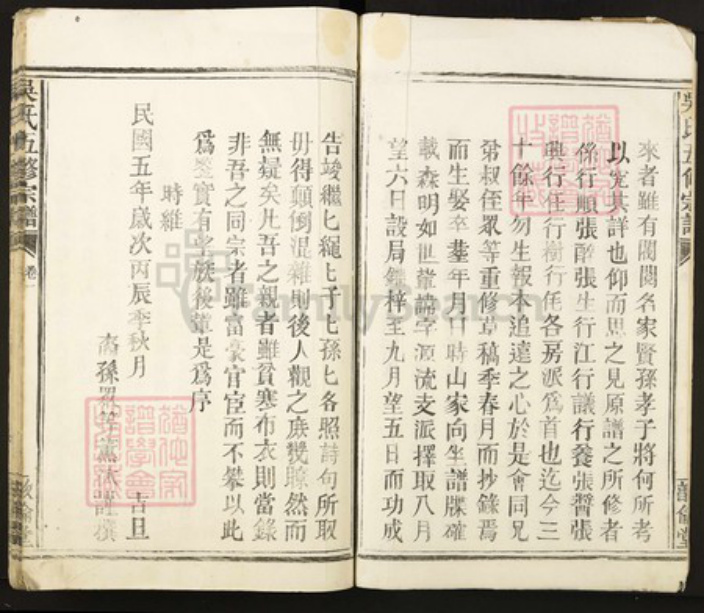 吳氏五修宗譜
來者雖有閥閱名家賢孫孝子將何所考
以究其詳也仰而思之見原譜之所修者
係行順張醉張生行江行議行養張晉張
興行任行樹行任各房派爲首也迄今三
十餘年勿生報本追遠之心於是會同兄
弟叔侄眾等重修草稿季春月而抄錄焉
而生娶卒塟年月日時山家向坐譜牒確
載森明如世諱字源流支派擇取八月
望六日設局鐫梓至九月望五日而功成
告竣繼匕繩匕子匕孫匕各照詩句所取
毋得顛倒混雜則後人觀之庶幾瞭然而
無疑矣凡吾之親者雖貧寒布衣則當錄
非吾之同宗者雖富豪官宦而不攀以此
爲鑒實有望族後輩是爲序
時維
民國五年歲次丙辰季秋月
吉旦
裔孫
謹撰
吳氏五修宗譜
卷一
敘倫堂
FamilySearch